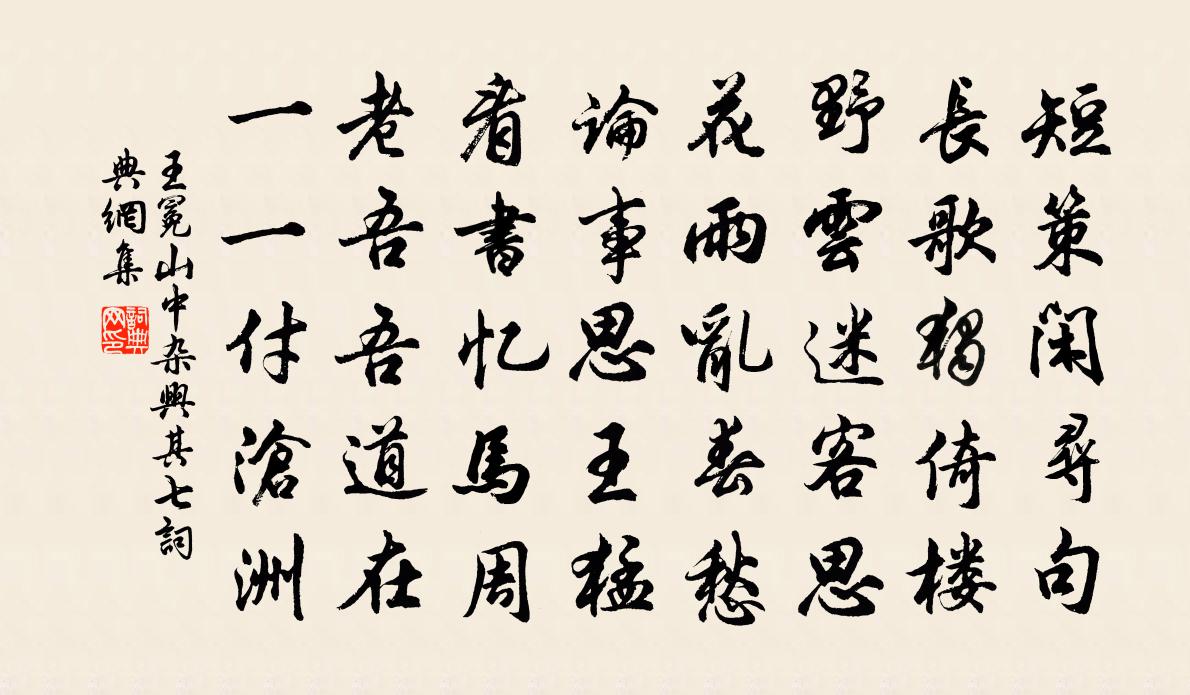 短策閑尋句
長歌獨倚楼
野雲迷客思
花雨亂春愁
論事思王猛
看書忆馬周
老吾吾道在
一一付滄洲
王冕山中杂興其七詞
典網集
詞典網印